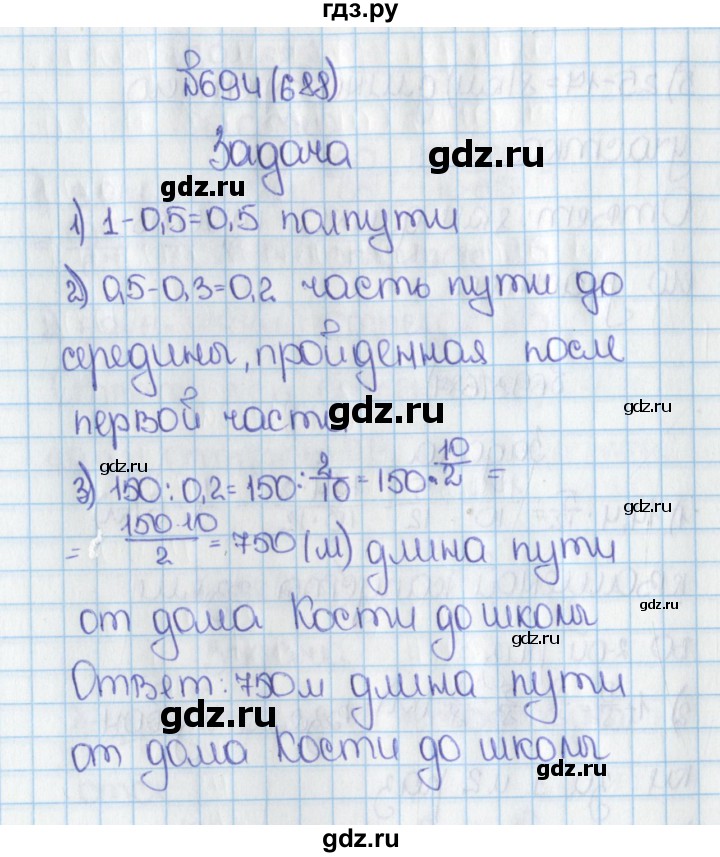 гдз.ру
№694(688)
Задача
gdz.ru
gdz.ru
1) 1-0,5=0,5 полпути
2) 0,5-0,3=0,2 часть пути до
середины, пройденная после
первой части
gdz.ru
gdz.ru
gdz.ru
3) 150:0,2=150:2/10=150·10/2=
gdz.ru
=150·10/2=750(м) длина пути
gdz.ru
от дома Кости до школы
gdz.ru
Ответ: 750м длина пути
gdz.ru
от дома Кости до школы
gdz.ru
gdz.ru